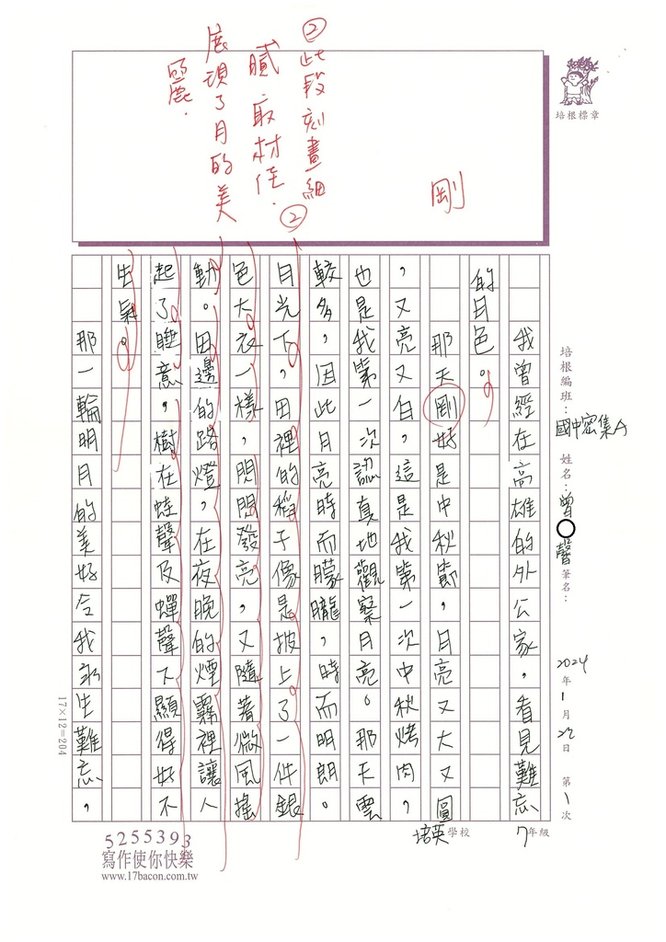 ②此段刻畫細
膩，取材佳．
展現了月的美
麗．
剛
②
培根標章
培根編班：國中密集A 姓名：曾〇馨 筆名：
2024年1月22日 第1次
7年級
培英學校
我曾經在高雄的外公家，看見難忘
的月色。
那天剛好是中秋節，月亮又大又圓
，又亮又白，這是我第一次中秋烤肉，
也是我第一次認真地觀察月亮。那天雲
較多，因此月亮時而朦朧，時而明朗。
月光下，田裡的稻子像是披上了一件銀
色大衣一樣，閃閃發亮，又隨著微風搖
動。田邊的路燈，在夜晚的煙霧裡讓人
起了睡意，樹在蛙聲及蟬聲下顯得好不
出氣。
那一輪明月的美好令我永生難忘，
17×12=204
5255393
寫作使你快樂
www.17bacon.com.tw